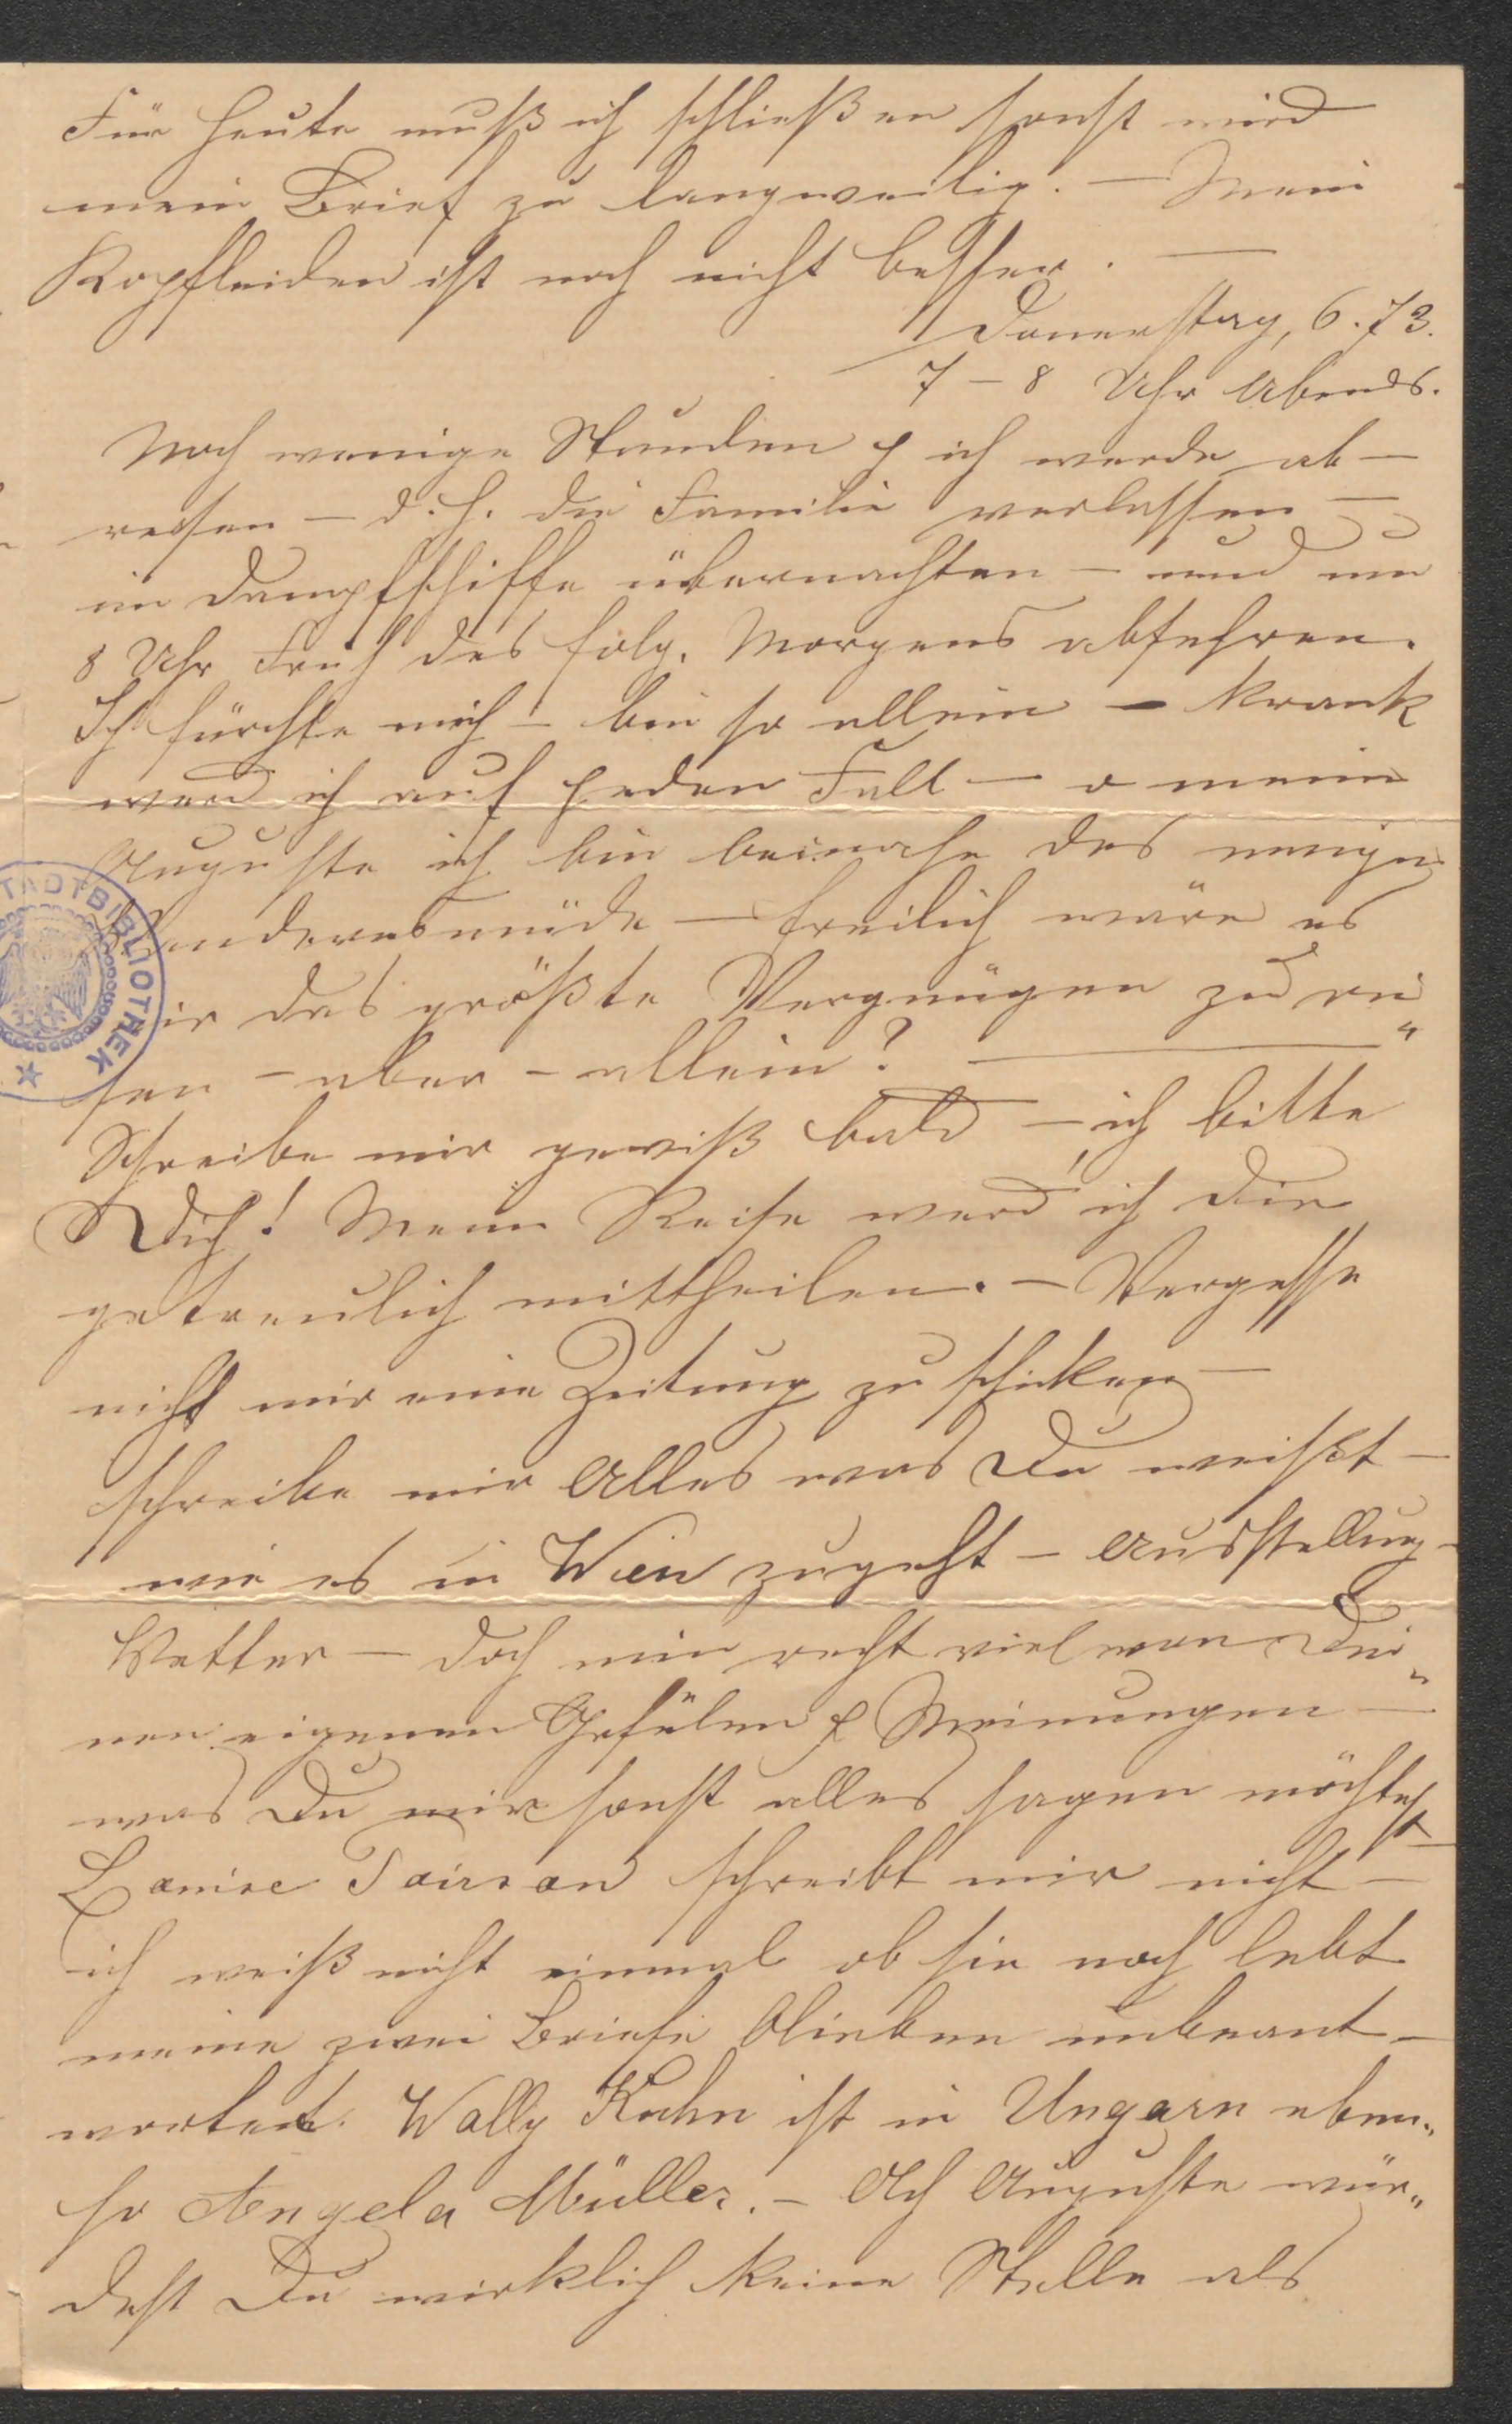 Für heute muß ich schließen sonst wird
mein Brief zu langweilig. — Mein
Kopfleiden ist noch nicht besser. —
Donerstag, 6. 73.
7 – 8 Uhr Abends.
Noch wenige Stunden & ich werde ab-
reisen — d. h. die Familie verlassen —
im Dampfschiffe übernachten — und um
8 Uhr Früh des folg. Morgens abfahren.
Ich fürchte mich – bin so allein — krank
werd ich auf jeden Fall — o meine
Auguste ich bin beinahe des ewigen
Wanderns müde — freilich wäre es
mir das größte Vergnügen zu rei„
sen – aber – allein? —
Schreibe mir gewiß bald — ich bitte
Dich! Meine Reise werd' ich Dir
getreulich mittheilen. — Vergesse
nicht mir eine Zeitung zu schicken —
schreibe mir Alles was Du weißt —
wie es in Wien zugeht — Ausstellung —
Wetter — doch nun recht viel von Dei„
nen eigenen Gefülen & Meinungen —
was Du mir sonst alles sagen möchtest —
Louise schreibt mir nicht —
ich weiß nicht einmal ob sie noch lebt
meine zwei Briefe blieben unbeant-
wortet. Wally Kuhn ist in Ungarn eben„
so Angela Müller. — Ach Auguste wür„
dest Du wirklich keine Stelle als
STADTBIBLIOTHEK